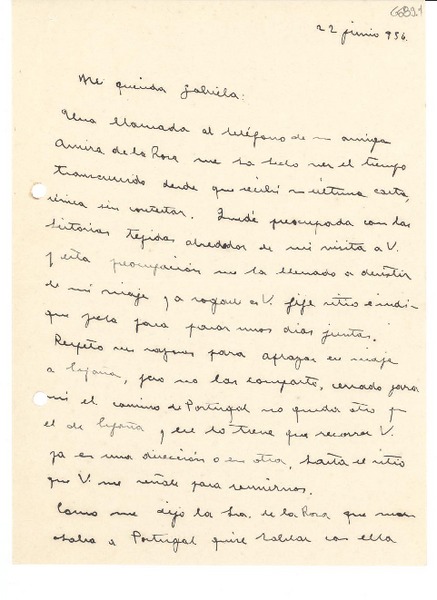 22 junio 936.
Mi querida Gabriela:
Una llamada al teléfono de su amiga
Amira de la Rosa me ha hecho ver el tiempo
transcurrido desde que recibí su última carta,
única sin contestar. Quedé preocupada con las
historias tejidas alrededor de mi visita a V.
y esta preocupación me ha llevado a desistir
de mi viaje y a rogarle a V. fije sitio e indi-
que fecha para pasar unos días juntas.
Respeto sus razones para aplazar su viaje
a España, pero no las comparto, cerrado para
mi el camino de Portugal no queda otro q
el de España y ese lo tiene que recorrer V.
ya en una dirección o en otra, hasta el sitio
que V. me señale para reunirnos.
Como me dijo la Sra. de la Rosa que mar-
chaba a Portugal quise hablar con ella